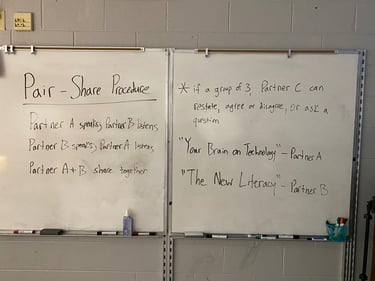 Pair - Share Procedure
Partner A speaks, Partner B listens
Partner B speaks, Partner A listens
Partner A + B share together
* if a group of 3, Partner C can
restate, agree or disagree, or ask a
question
"Your Brain on Technology" - Partner A
"The New Literacy" - Partner B